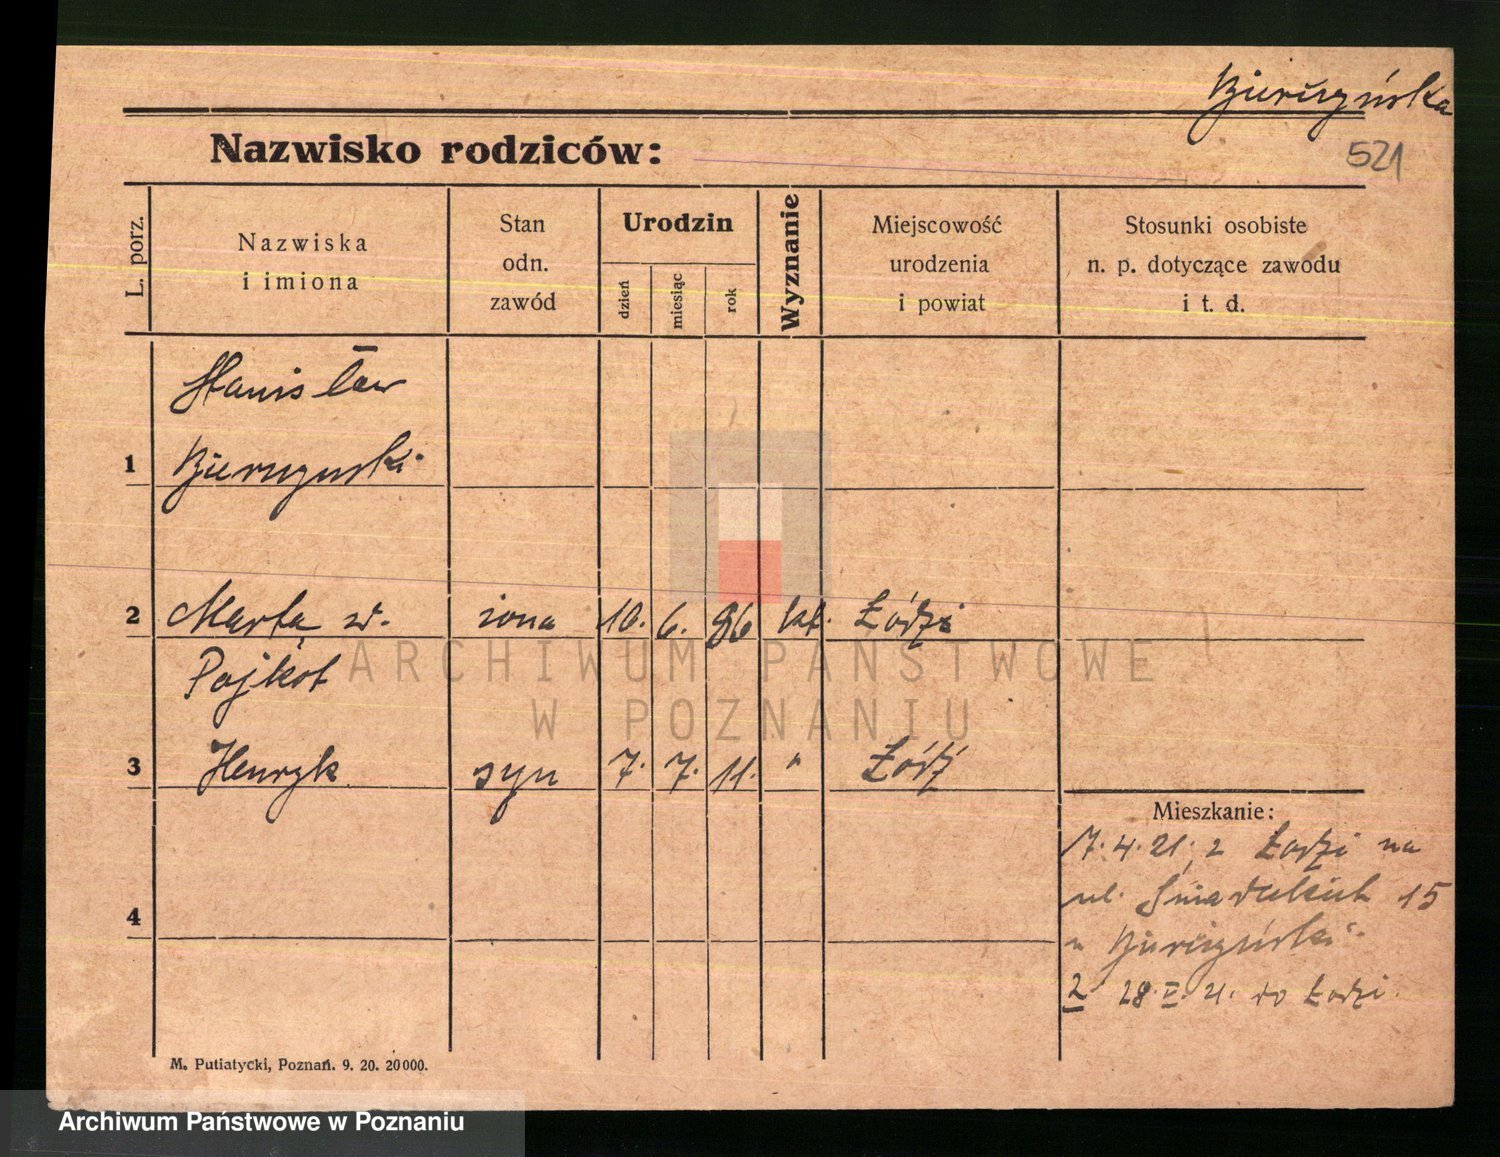 521
Nazwisko rodziców:
L. porz.
Nazwiska
i imiona
Stan
odn.
zawód
Urodzin
dzień
miesiąc
rok
Wyznanie
Miejscowość
urodzenia
i powiat
Stosunki osobiste
n. p. dotyczące zawodu
i t. d.
Stanisław
1
2 Marta z żona 10. 6. 86 kt. Łódź
Pajkot
3 Henryk syn 7. 7. 11. " Łódź
Mieszkanie:
7. 4. 21; z Łodzi na
ul. Śniadeckich 15
4
2 28. V. 21. do Łodzi.
M. Putiatycki, Poznań. 9. 20. 20000.
ARCHIWUM PAŃSTWOWE
W POZNANIU
Archiwum Państwowe w Poznaniu